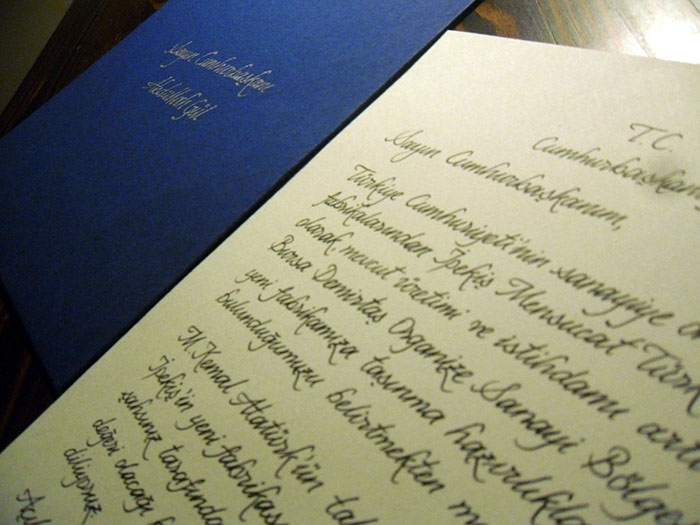 Sayın Cumhurbaşkanı
Abdullah Gül
T.C.
Sayın Cumhurbaşkanım,
Türkiye Cumhuriyeti'nin sanayiye
fabrikalarından İpekiş Mensucat Türk
olarak, mevcut üretimi ve istihdamı
Bursa Demirtaş Organize Sanayi Bölge
yeni fabrikamıza taşınma
bulunduğumuzu belirtmekten
M. Kemal Atatürk'ün
İpekiş'in yeni
şahsınız
değeri olacağı
diliyoruz.